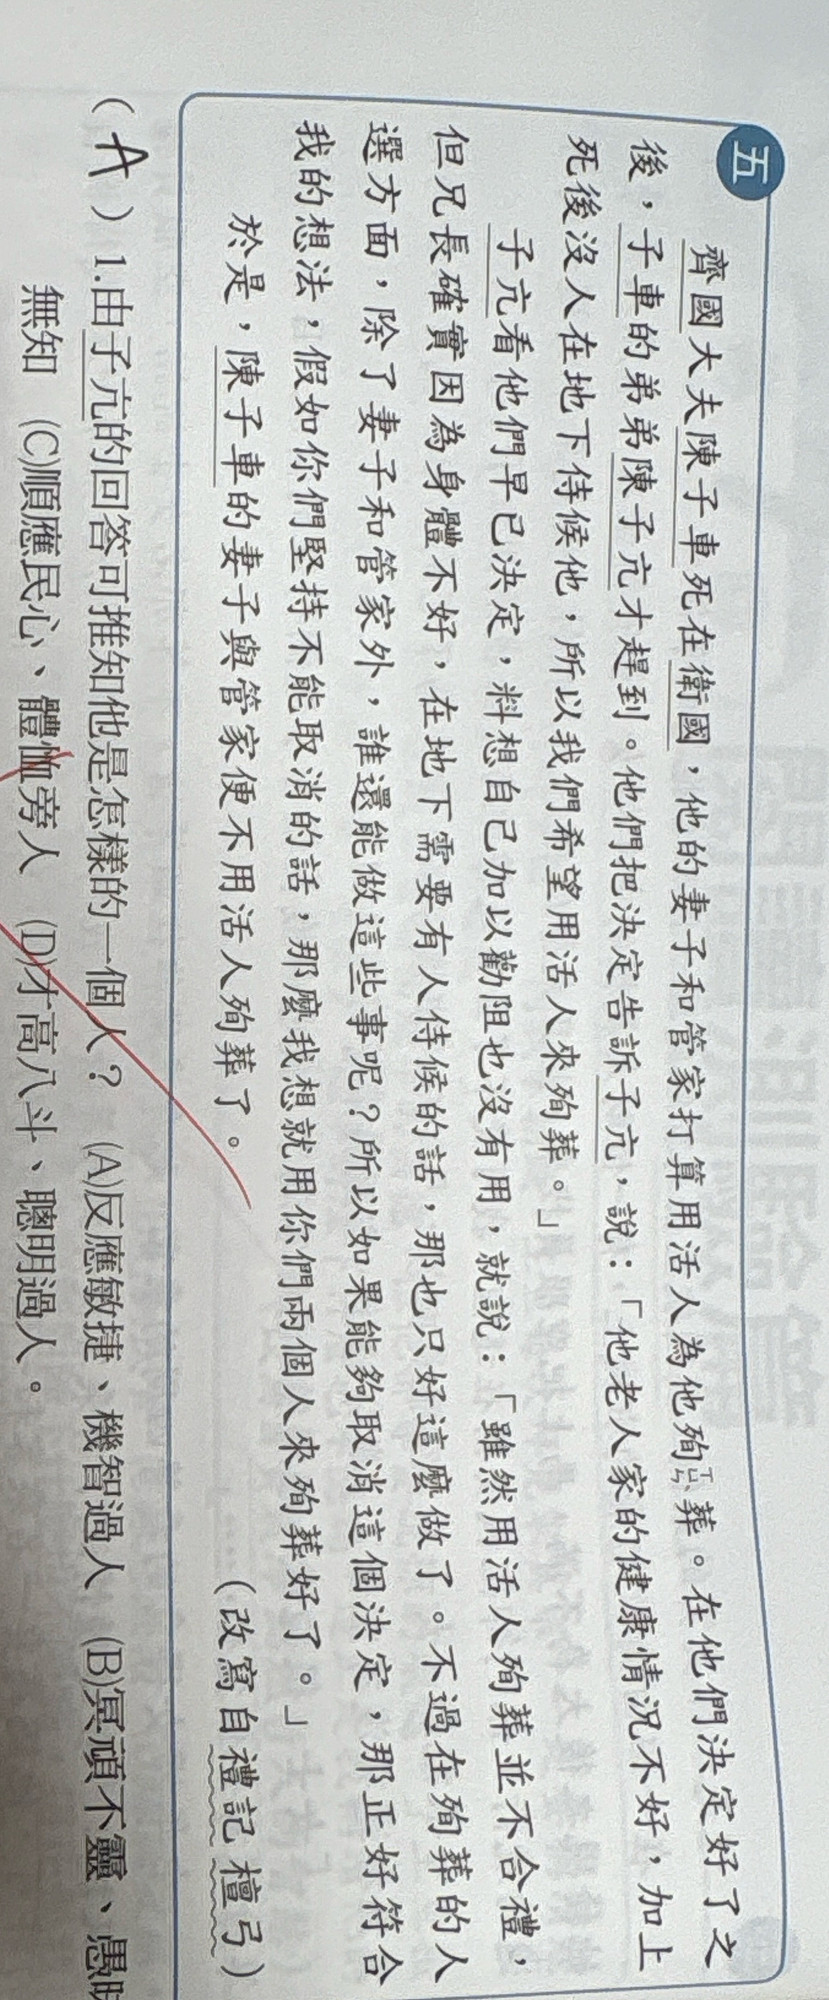 五
齊國大夫陳子車死在衛國，他的妻子和管家打算用活人為他殉ㄒㄩㄣˋ葬。在他們決定好了之
後，子車的弟弟陳子亢才趕到。他們把決定告訴子亢，說：「他老人家的健康情況不好，加上
死後沒人在地下侍候他，所以我們希望用活人來殉葬。」
子亢看他們早已決定，料想自己加以勸阻也沒有用，就說：「雖然用活人殉葬並不合禮，
但兄長確實因為身體不好，在地下需要有人侍候的話，那也只好這麼做了。不過在殉葬的人
選方面，除了妻子和管家外，誰還能做這些事呢？所以如果能夠取消這個決定，那正好符合
我的想法，假如你們堅持不能取消的話，那麼我想就用你們兩個人來殉葬好了。」
於是，陳子車的妻子與管家便不用活人殉葬了。（改寫自禮記檀弓）
（A）1.由子亢的回答可推知他是怎樣的一個人？ (A)反應敏捷、機智過人 (B)冥頑不靈、愚昧
無知 (C)順應民心、體恤旁人 (D)才高八斗、聰明過人。